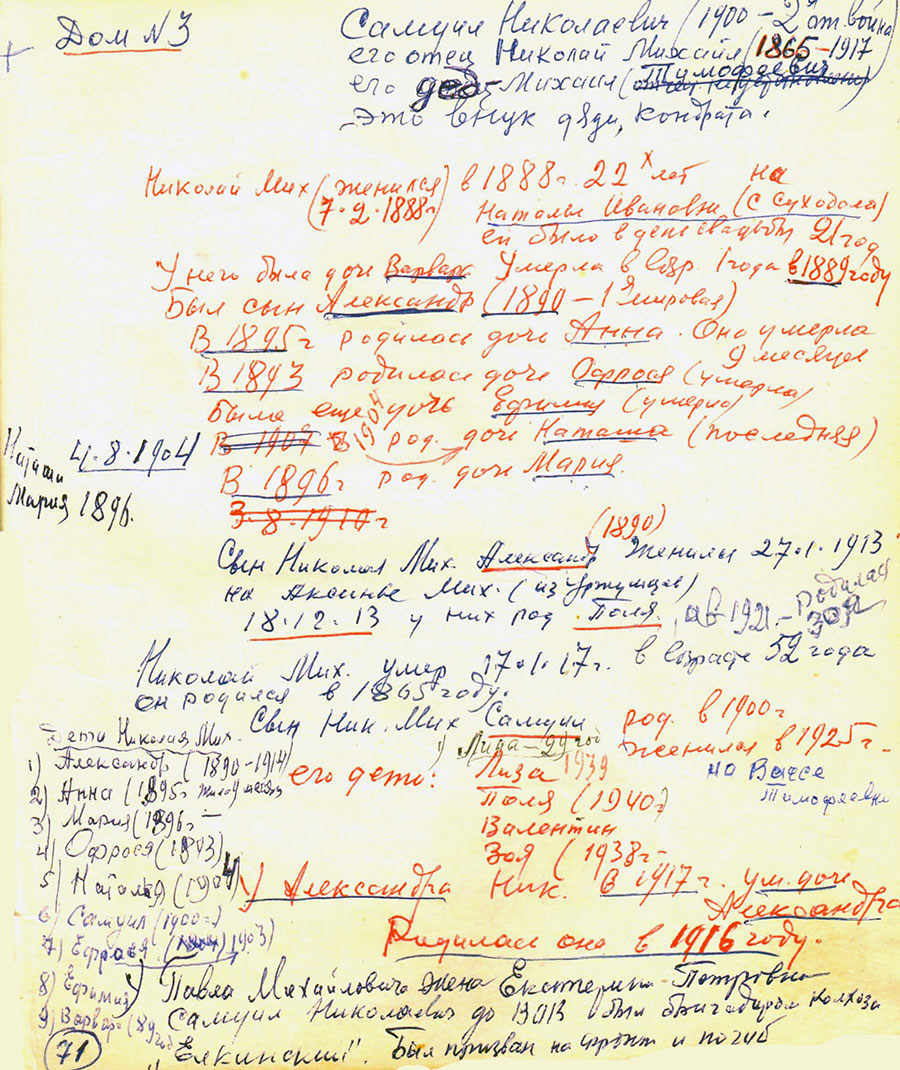 Дом №3
Самуил Николаевич (1900 – 2 от. война)
его отец Николай Михайл (1865 – 1917
его дед – Михаил (Тимофеевич
Это внук дяди, Кондрата.
Николай Мих (женился) в 1888г. 22х лет на
(7.2.1888г) Наталье Ивановне (с Суходола)
ей было в день свадьбы 21 год
У него была дочь Варвара Умерла в возр. 1 года в 1889 году
Был сын Александр (1890 – 1я мировая)
В 1895г родилась дочь Анна. Она умерла
9 месяцев
В 1893 родилась дочь Офрося (умерла)
Была еще дочь Ефимия (умерла)
В 1907 в 1904 род. дочь Наташа (последняя)
Наташа 4.8.1904
Мария 1896.
В 1896г род. дочь Мария.
3.8.1910г
(1890)
Сын Николая Мих. Александр женился 27.1.1913
на Аксинье Мих. (из Уржумцев)
18.12.13 у них род. Поля, а в 1921 – родилась
Зоя
Николай Мих. умер 17.1.17г. в возрасте 52 года
он родился в 1865 году.
Сын Ник. Мих Самуил род. в 1900г
женился в 1925г –
на Вассе
Тимофеевне
его дети: Лиза 1939
Поля (1940г)
Валентин
Зоя (1938г –
Дети Николая Мих.
1) Александр (1890–1914)
2) Анна (1895г жила 9 месяц
3) Мария (1896г –
4) Офрося (1893)
5) Наталья (1904)
6) Самуил (1900г)
7) Ефрося 1903)
8) Ефимия
9) Варвара (89 год
У Александра Ник. в 1917г. ум. дочь
Александра
Родилась она в 1916 году.
У Павла Михайловича жена Екатерина Петровна
Самуил Николаевич до ВОВ был бригадиром колхоза
"Елкинский". Был призван на фронт и погиб
71